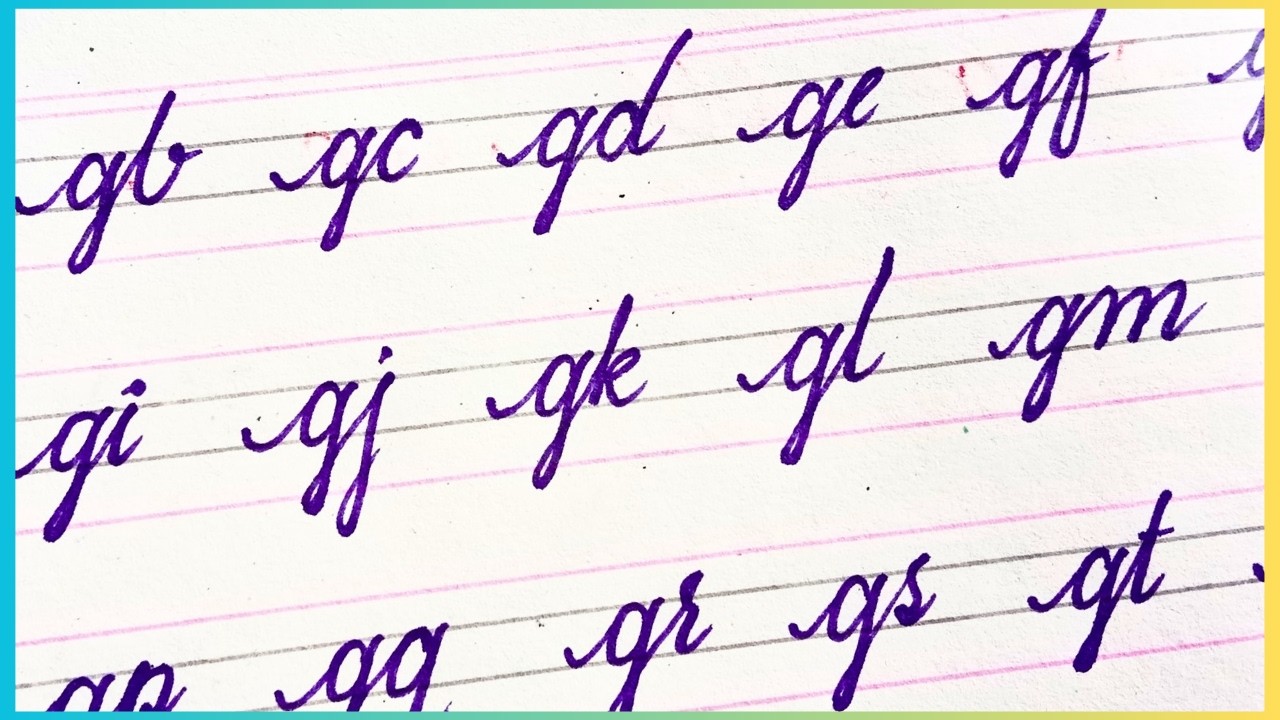 gb gc gd ge gf
gi gj gk gl gm
gp gq gr gs gt